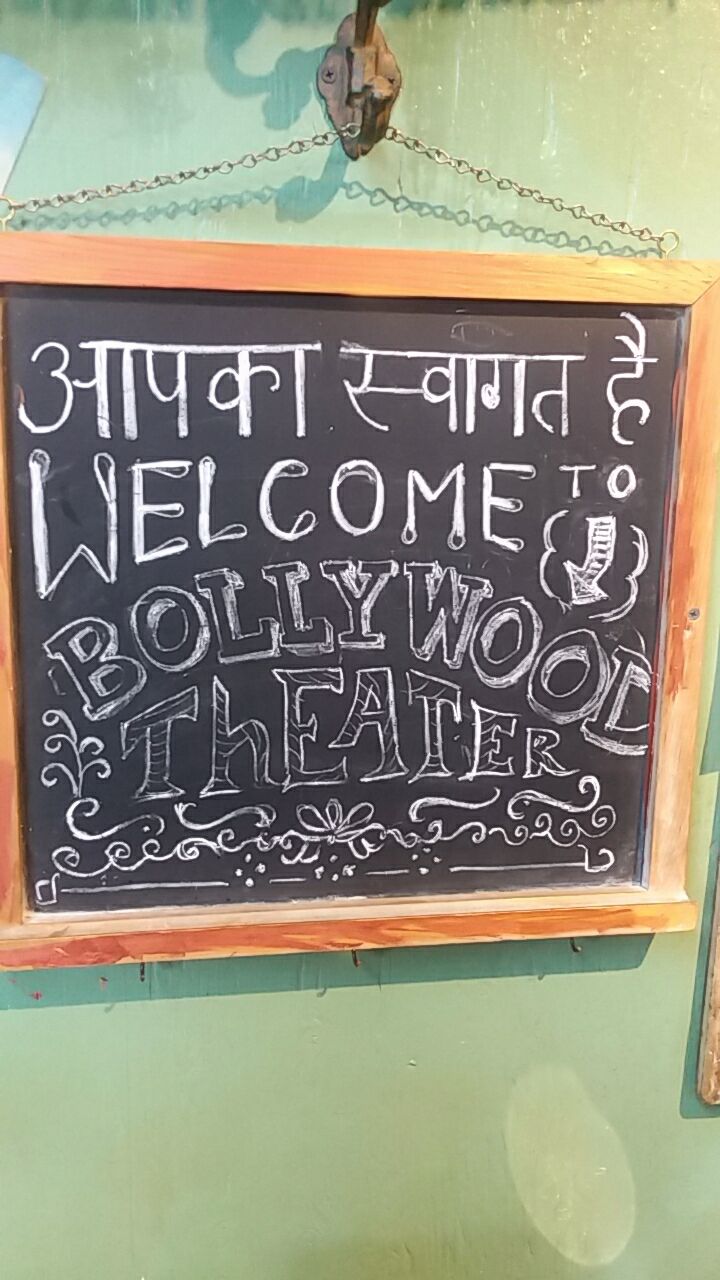 आपका स्वागत है
WELCOME TO
BOLLYWOOD
ThEATER